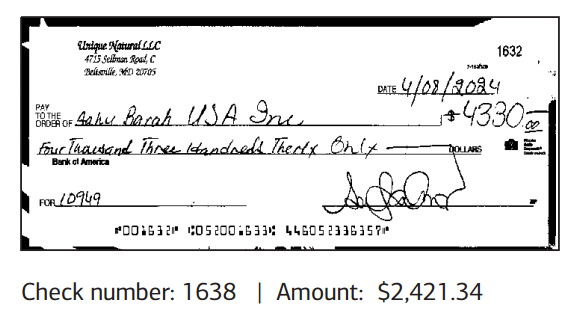 Unique Natural LLC
4715 Sellman Road, C
Beltsville, MD 20705
1632
DATE 4/08/2024
PAY
TO THE
ORDER OF Aahu Barah USA Inc. $ 4330.00
Four Thousand Three Hundreds Therty Only DOLLARS
Bank of America
FOR 10949
⑈001632⑈ ⑆052001633⑆ 446052336357⑈
Check number: 1638 | Amount: $2,421.34